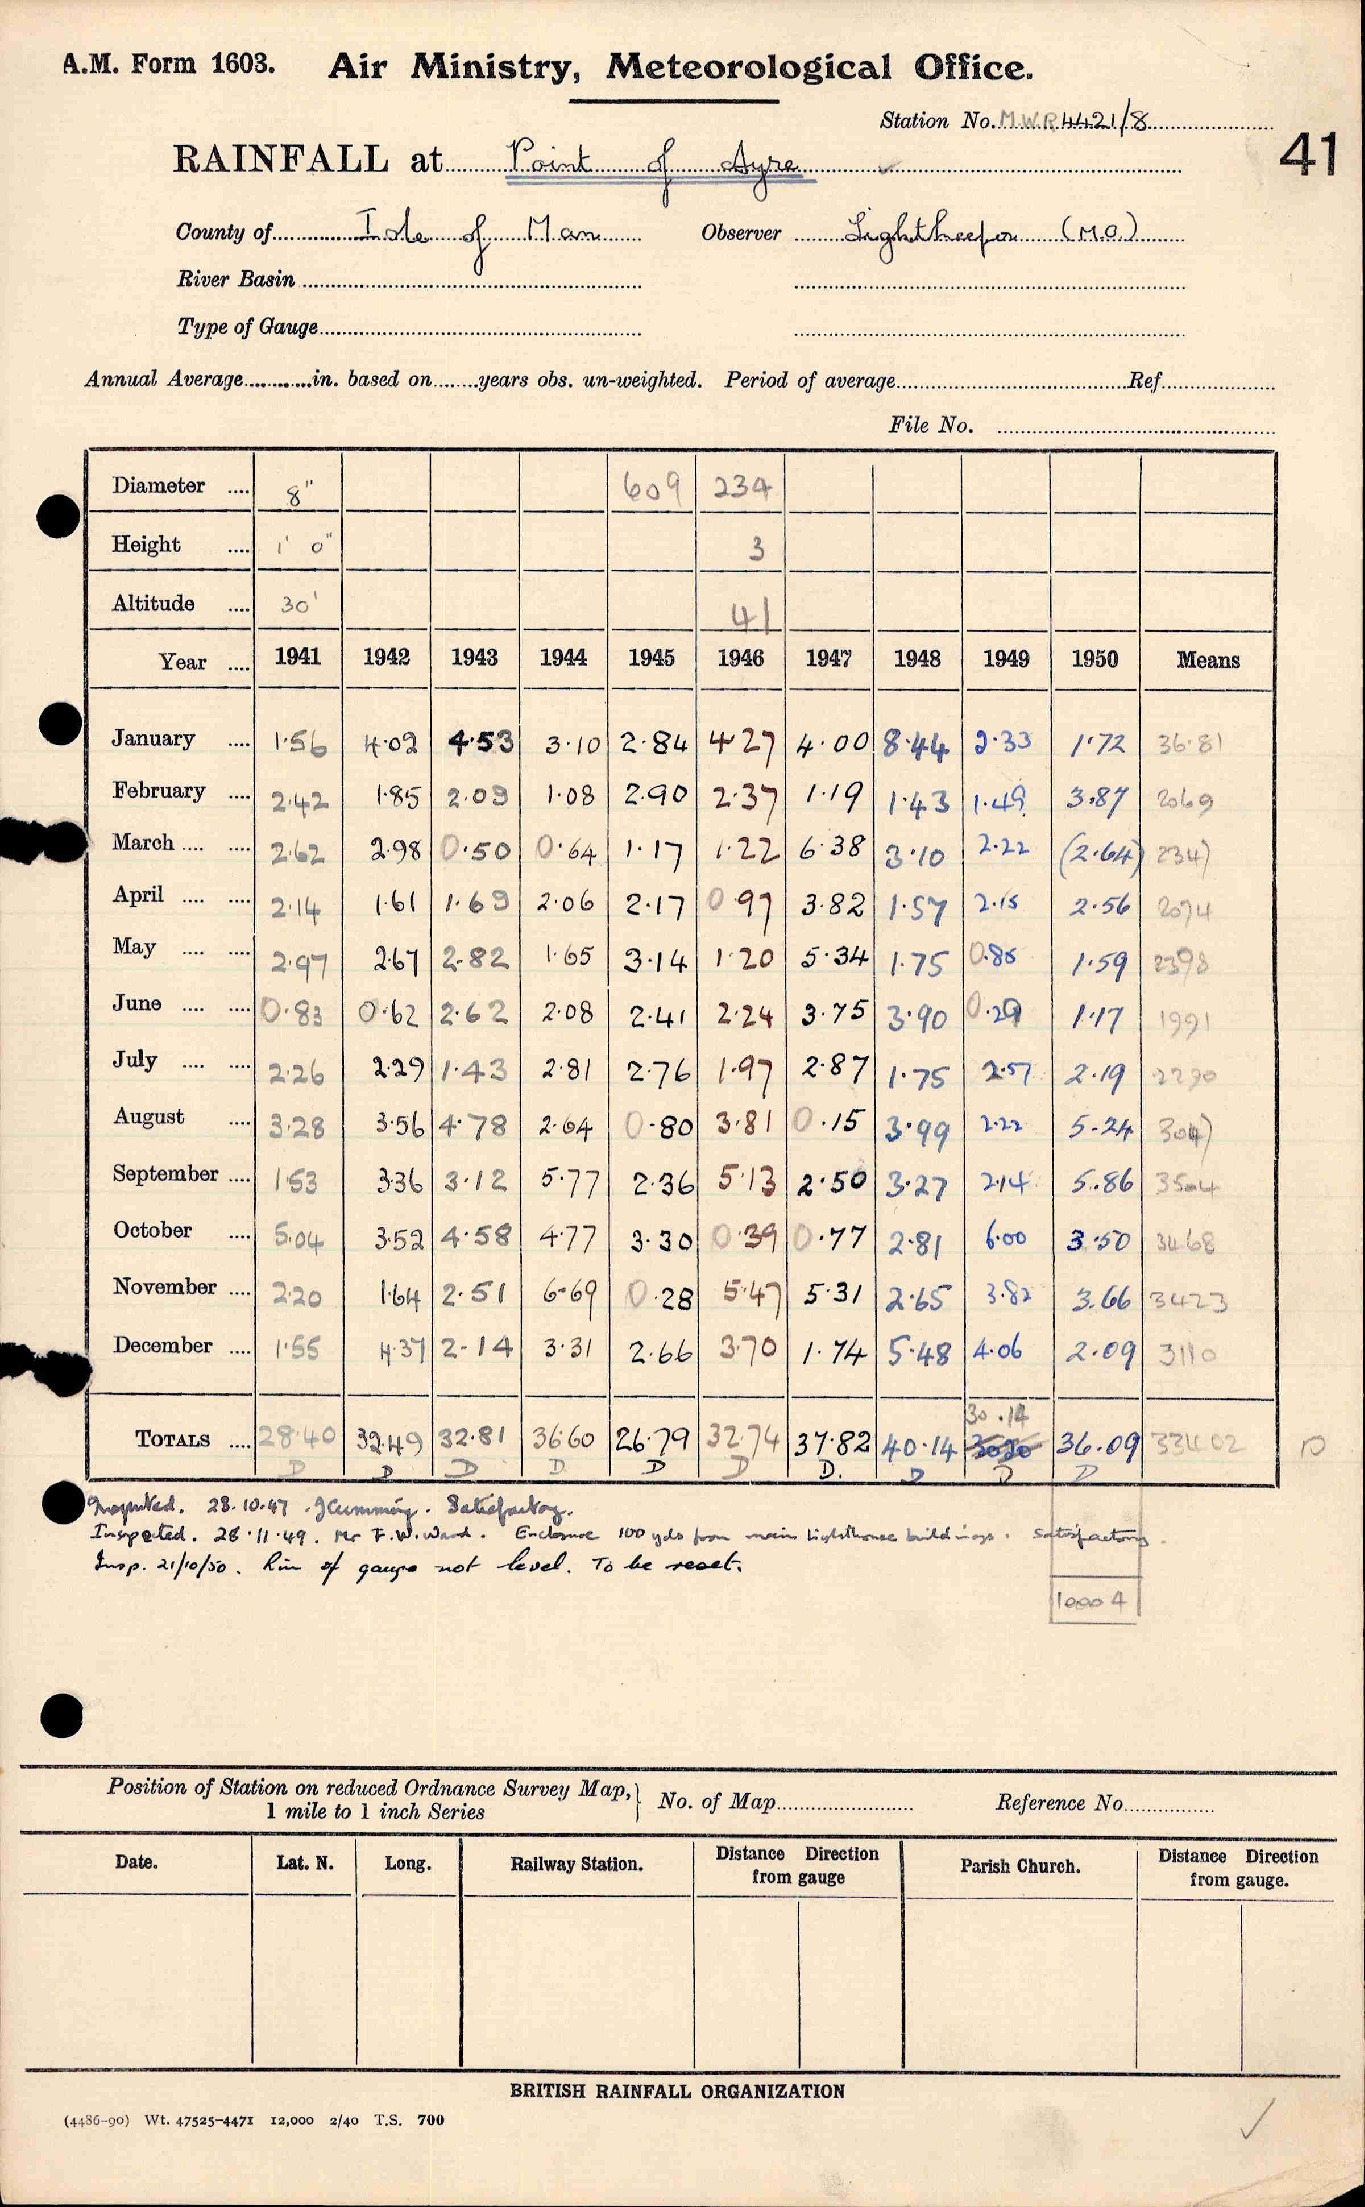 A.M. Form 1603. Air Ministry, Meteorological Office.
Station No. M.W.R 4421/8
41
RAINFALL at Point of Ayre
County of Isle of Man Observer Lightkeeper (M.O.)
River Basin
Type of Gauge
Annual Average in. based on years obs. un-weighted. Period of average Ref.
File No.
Diameter 8" 609 234
Height 1' 0" 3
Altitude 30' 41
Year 1941 1942 1943 1944 1945 1946 1947 1948 1949 1950 Means
January 1.56 4.02 4.53 3.10 2.84 4.27 4.00 8.44 2.33 1.72 36.81
February 2.42 1.85 2.09 1.08 2.90 2.37 1.19 1.43 1.49 3.87 2069
March 2.62 2.98 0.50 0.64 1.17 1.22 6.38 3.10 2.22 (2.64) 2347
April 2.14 1.61 1.69 2.06 2.17 0.97 3.82 1.57 2.15 2.56 2074
May 2.97 2.67 2.82 1.65 3.14 1.20 5.34 1.75 0.85 1.59 2398
June 0.83 0.62 2.62 2.08 2.41 2.24 3.75 3.90 0.29 1.17 1991
July 2.26 2.29 1.43 2.81 2.76 1.97 2.87 1.75 2.57 2.19 2290
August 3.28 3.56 4.78 2.64 0.80 3.81 0.15 3.99 2.22 5.24 3047
September 1.53 3.36 3.12 5.77 2.36 5.13 2.50 3.27 2.14 5.86 3504
October 5.04 3.52 4.58 4.77 3.30 0.39 0.77 2.81 6.00 3.50 3468
November 2.20 1.64 2.51 6.69 0.28 5.47 5.31 2.65 3.82 3.66 3423
December 1.55 4.37 2.14 3.31 2.66 3.70 1.74 5.48 4.06 2.09 3110
30.14
TOTALS 28.40 32.49 32.81 36.60 26.79 32.74 37.82 40.14 36.09 33402 10
D D D D D D D. D D D
Inspected. 28.10.47. J Cumming. Satisfactory.
Inspected. 28.11.49. Mr F.W. Ward. Enclosure 100 yds from main lighthouse buildings. Satisfactory.
Insp. 21/10/50. Rim of gauge not level. To be reset.
10004
Position of Station on reduced Ordnance Survey Map, No. of Map Reference No.
1 mile to 1 inch Series
Date. Lat. N. Long. Railway Station. Distance Direction from gauge Parish Church. Distance Direction from gauge.
BRITISH RAINFALL ORGANIZATION
(4486-90) Wt. 47525-4471 12,000 2/40 T.S. 700